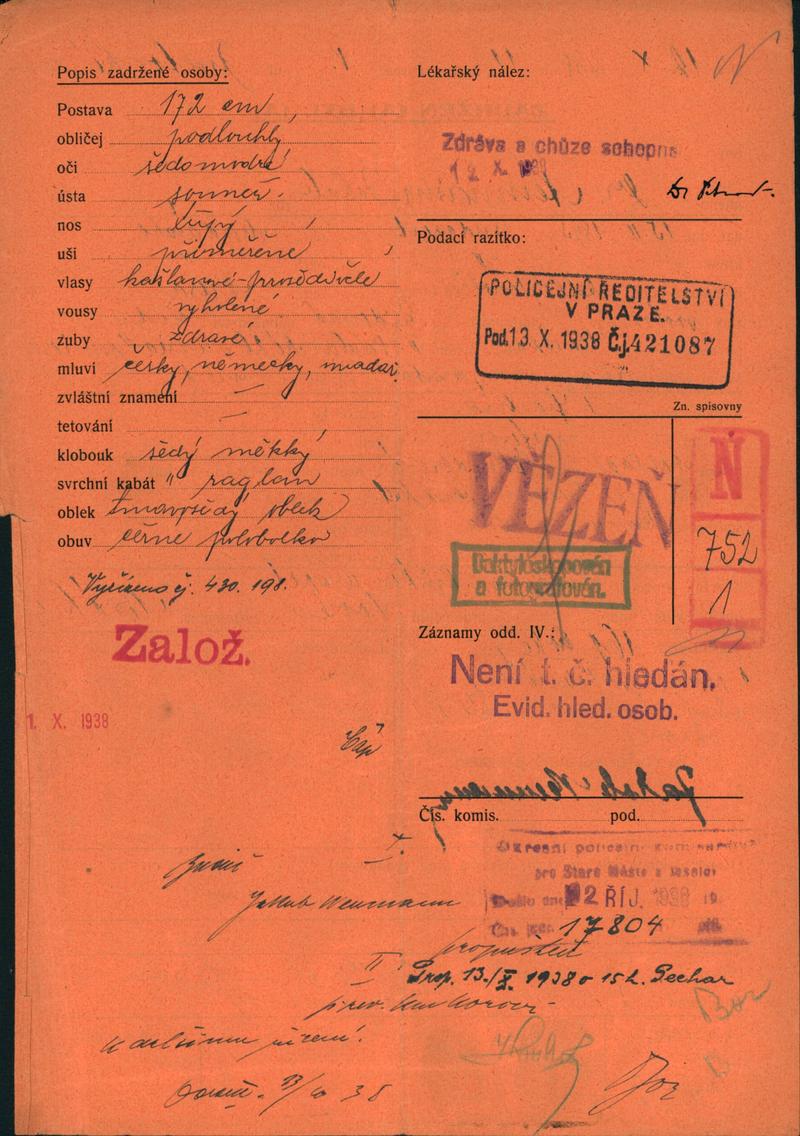 Popis zadržené osoby:
Postava 172 cm,
obličej podlouhlý
oči šedomodré
ústa souměr.
nos tupý,
uši přiměřené,
vlasy kaštanové-prošedivělé
vousy vyholené
zuby zdravé
mluví česky, německy, maďar.
zvláštní znamení —
tetování —
klobouk šedý měkký
svrchní kabát " raglan
oblek tmavošedý oblek
obuv černé polobotky
Vyřízeno čj. 430.198.
Založ.
1. X. 1938
Čáp
Lékařský nález:
Zdráva a chůze schopna
12 X. 1938
Dr
Podací razítko:
POLICEJNÍ ŘEDITELSTVÍ
V PRAZE.
Pod. 13. X. 1938 Čj. 421087
Zn. spisovny
VĚZEŇ
Ň
752
1
Daktyloskopován
a fotografován.
Záznamy odd. IV.:
Není t. č. hledán.
Evid. hled. osob.
Jakob Neumann
Čís. komis. pod.
Okresní policejní komisařství
pro Staré Město a Josefov
Došlo dne 12 ŘÍJ. 1938
Čís. jedn. 17804
I.
Jakub Neumann
propuštěn
II. Prop. 13./X. 1938 o 15 h. Pechar
k dalšímu řízení.
13/10 38